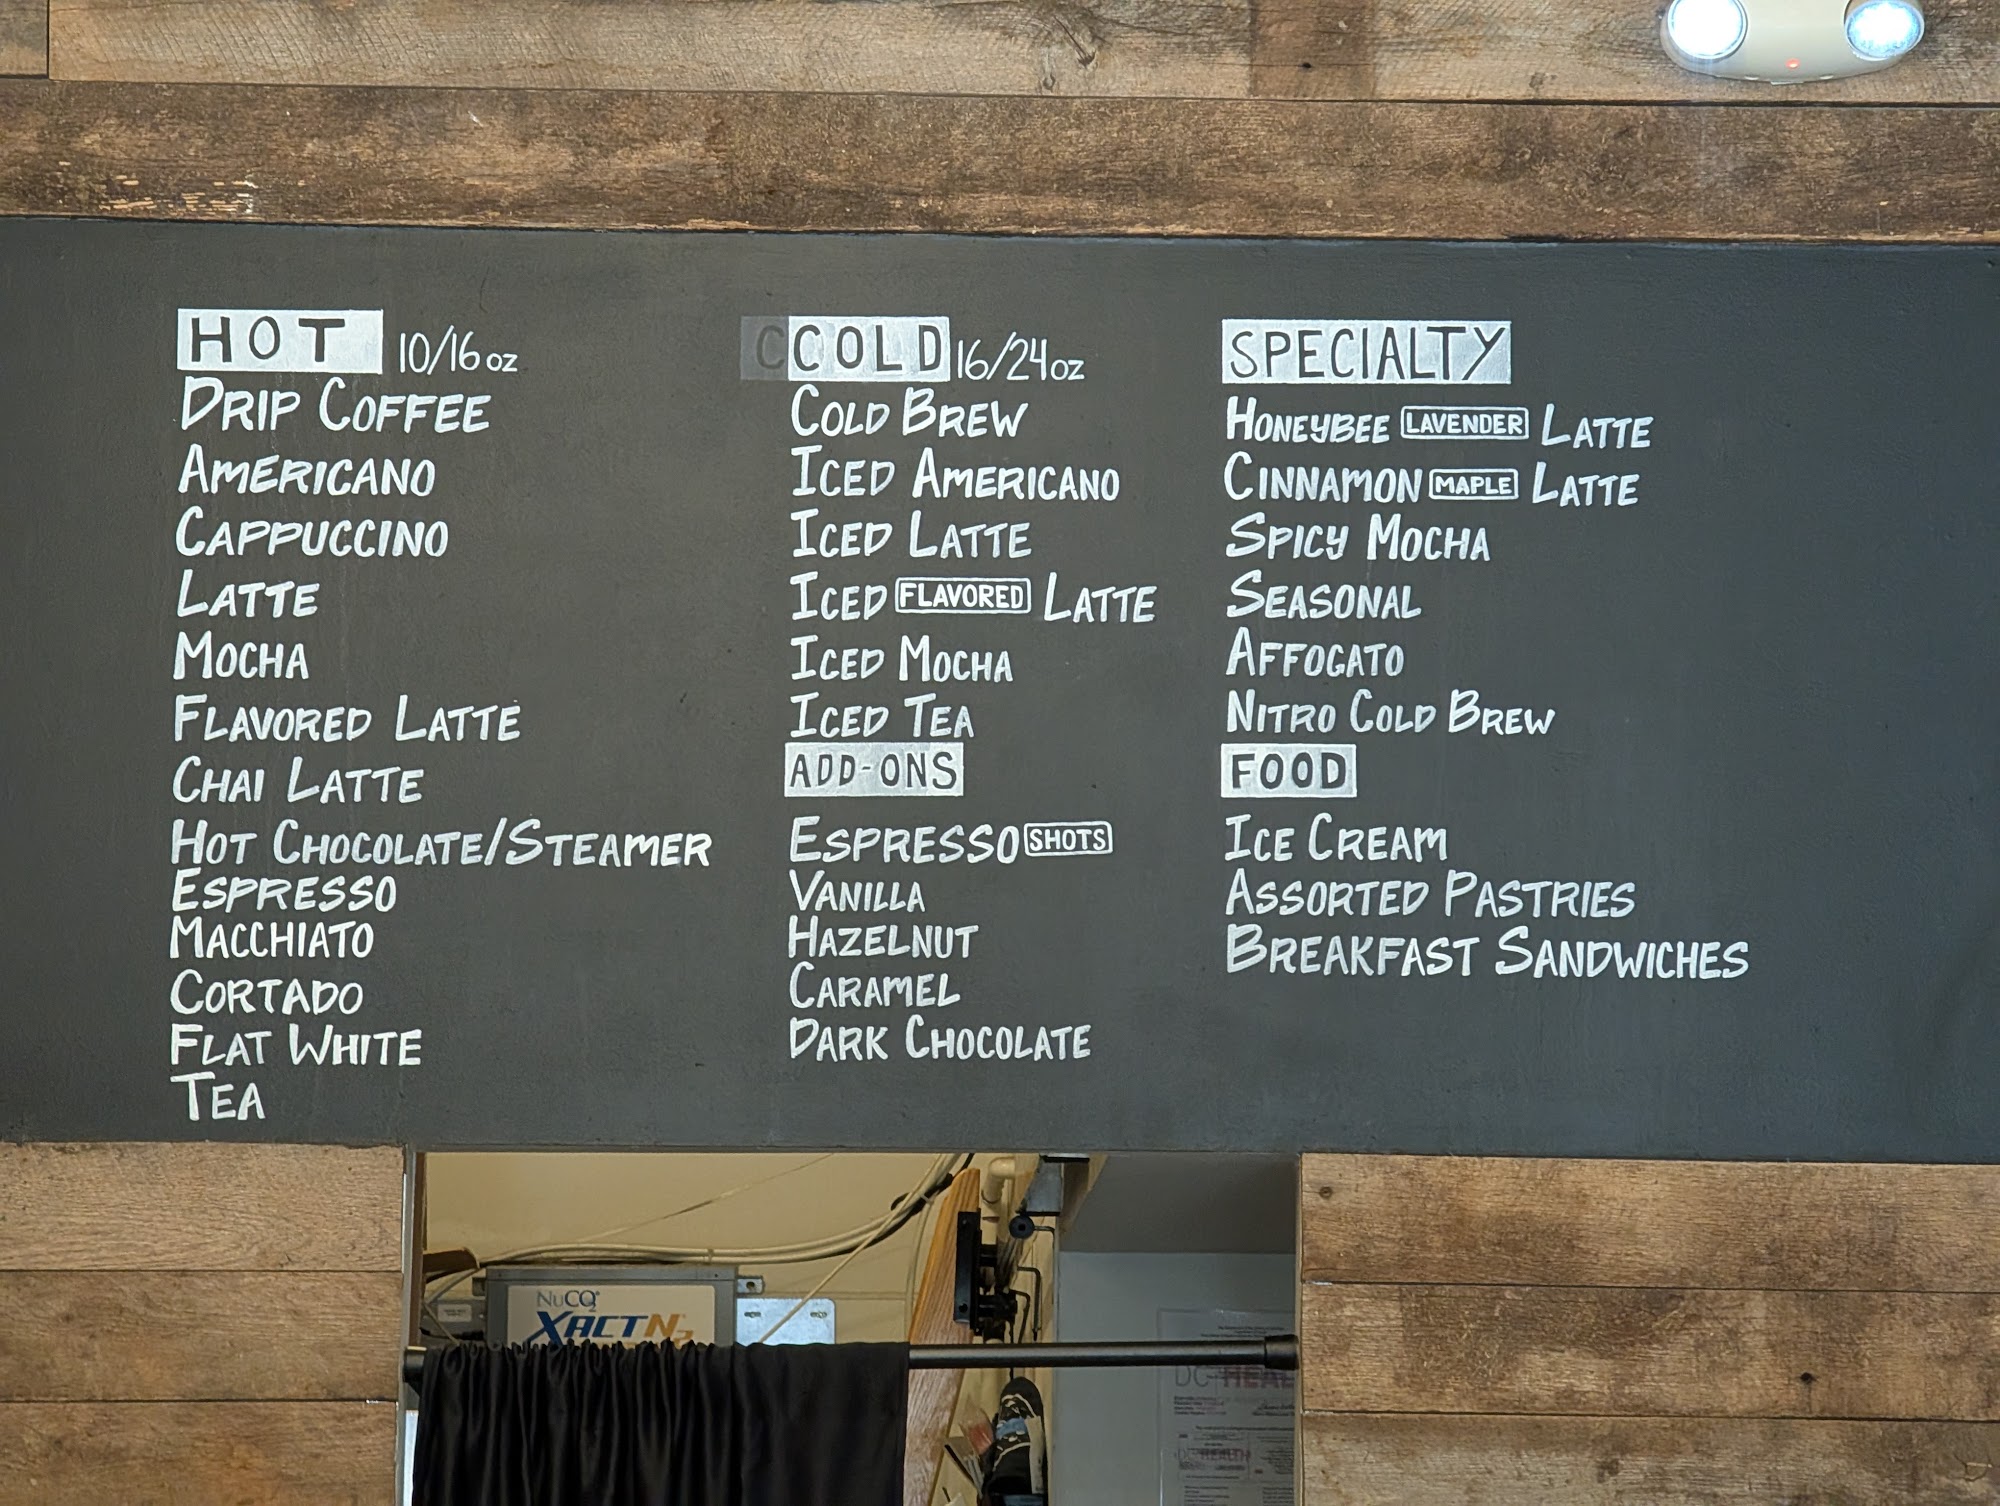 HOT 10/16 oz
DRIP COFFEE
AMERICANO
CAPPUCCINO
LATTE
MOCHA
FLAVORED LATTE
CHAI LATTE
HOT CHOCOLATE/STEAMER
ESPRESSO
MACCHIATO
CORTADO
FLAT WHITE
TEA
CCOLD 16/24 oz
COLD BREW
ICED AMERICANO
ICED LATTE
ICED FLAVORED LATTE
ICED MOCHA
ICED TEA
ADD-ONS
ESPRESSO SHOTS
VANILLA
HAZELNUT
CARAMEL
DARK CHOCOLATE
SPECIALTY
HONEYBEE LAVENDER LATTE
CINNAMON MAPLE LATTE
SPICY MOCHA
SEASONAL
AFFOGATO
NITRO COLD BREW
FOOD
ICE CREAM
ASSORTED PASTRIES
BREAKFAST SANDWICHES
NuCO2
XACTN2
DC HEAL
DC HEALTH